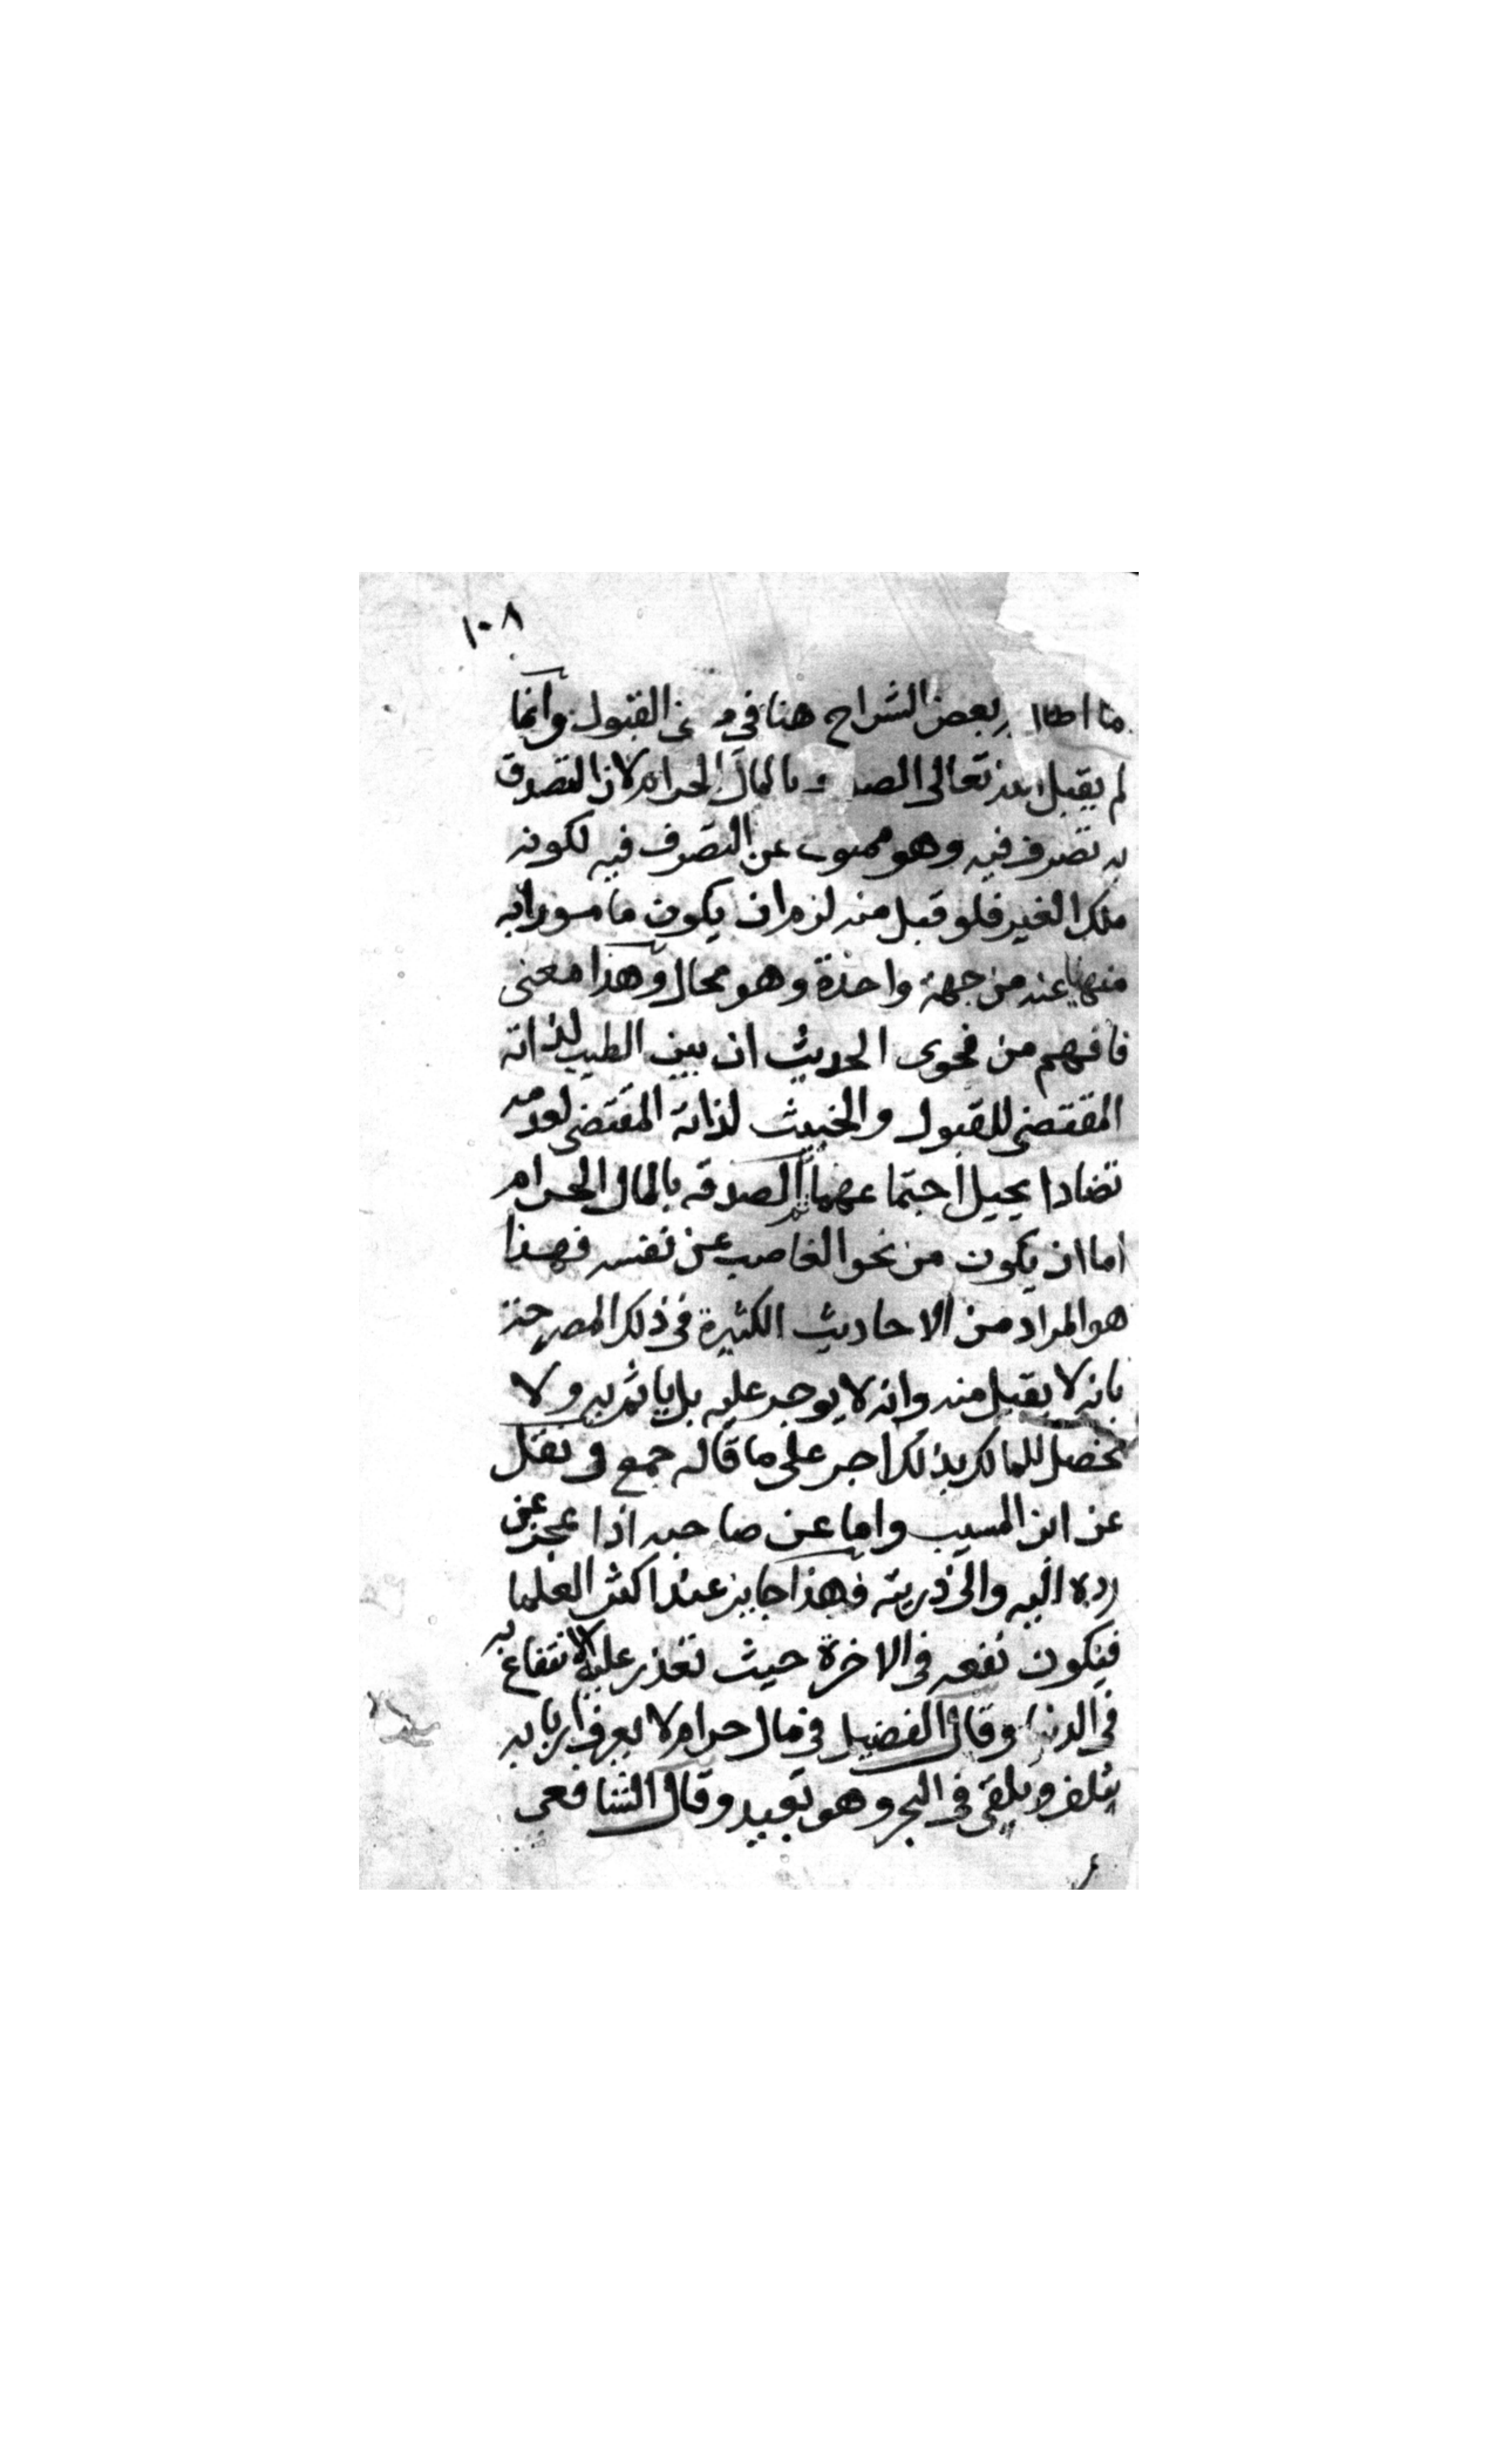 ١٠٨
ما اطا بعض الشراح هنا في القبول وانما
لم يقبل الله تعالى الصد بالمال الحرام لان التصدق
به تصرف فيه وهو ممنوع عن التصرف فيه لكونه
ملك الغير فلو قبل منه لزم ان يكون مامورا به
منهيا عنه من جهة واحدة وهو محال وهذا معنى
فافهم من فحوى الحديث ان بين الطيب لذاته
المقتضى للقبول والخبيث لذاته المقتضى لعدمه
تضادا يحيل اجتماعهما ثم الصدقه بالمال الحرام
اما ان يكون من نحو الغاصب عن نفسه فهذا
هو المراد من الاحاديث الكثيرة في ذلك المصرحة
بانه لا يقبل منه وانه لا يوجر عليه بل ياثم به ولا
يحصل للمالك بذلك اجر على ما قاله جمع و نقل
عن ابن المسيب واما عن صاحبه اذا عجز عن
رده اليه والى ذريته فهذا جايز عند اكثر العلما
فيكون نفعه في الاخرة حيث تعذر عليه الانتفاع به
في الدنيا وقال الفضيل في مال حرام لا يعرف اربابه
يتلف ويلقى في البحر وهو بعيد وقال الشافعى